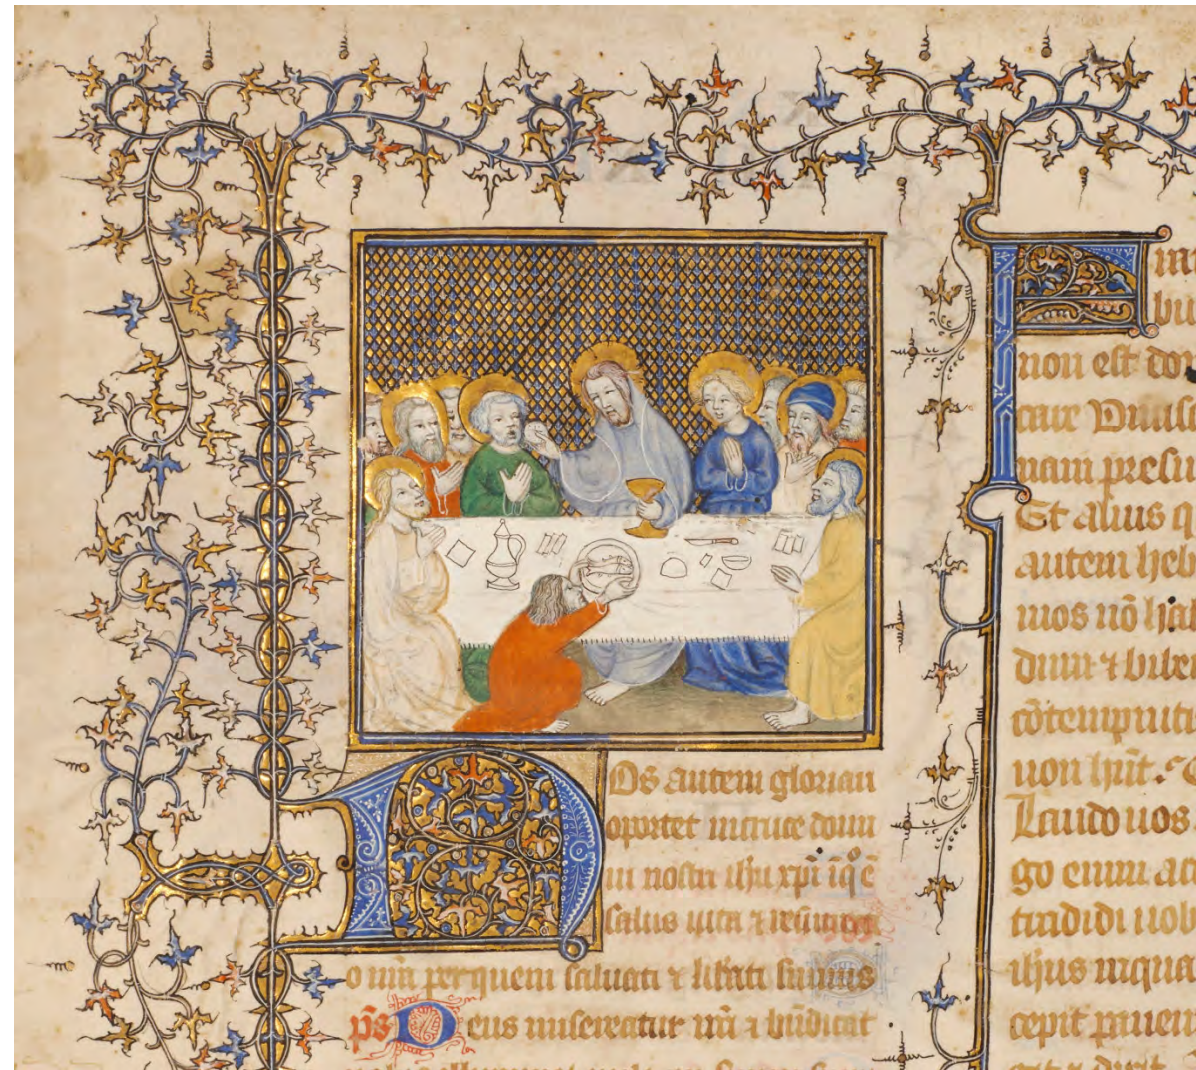 Nos autem gloriari
oportet in cruce domi
ni nostri ihu xpi ī q̊ ē
salus uita ⁊
o nr̄a per quem saluati ⁊ libati sumus
ps Deus misereatur nr̄i ⁊ bn̄dicat
non est do
care
nam presu
Et alius q
autem heb
mos nō ha
dum ⁊ bibe
cōtempniti
non hn̄t.
Laudo uos
go enim ac
tradidi uob
ihus in qua
cepit panem